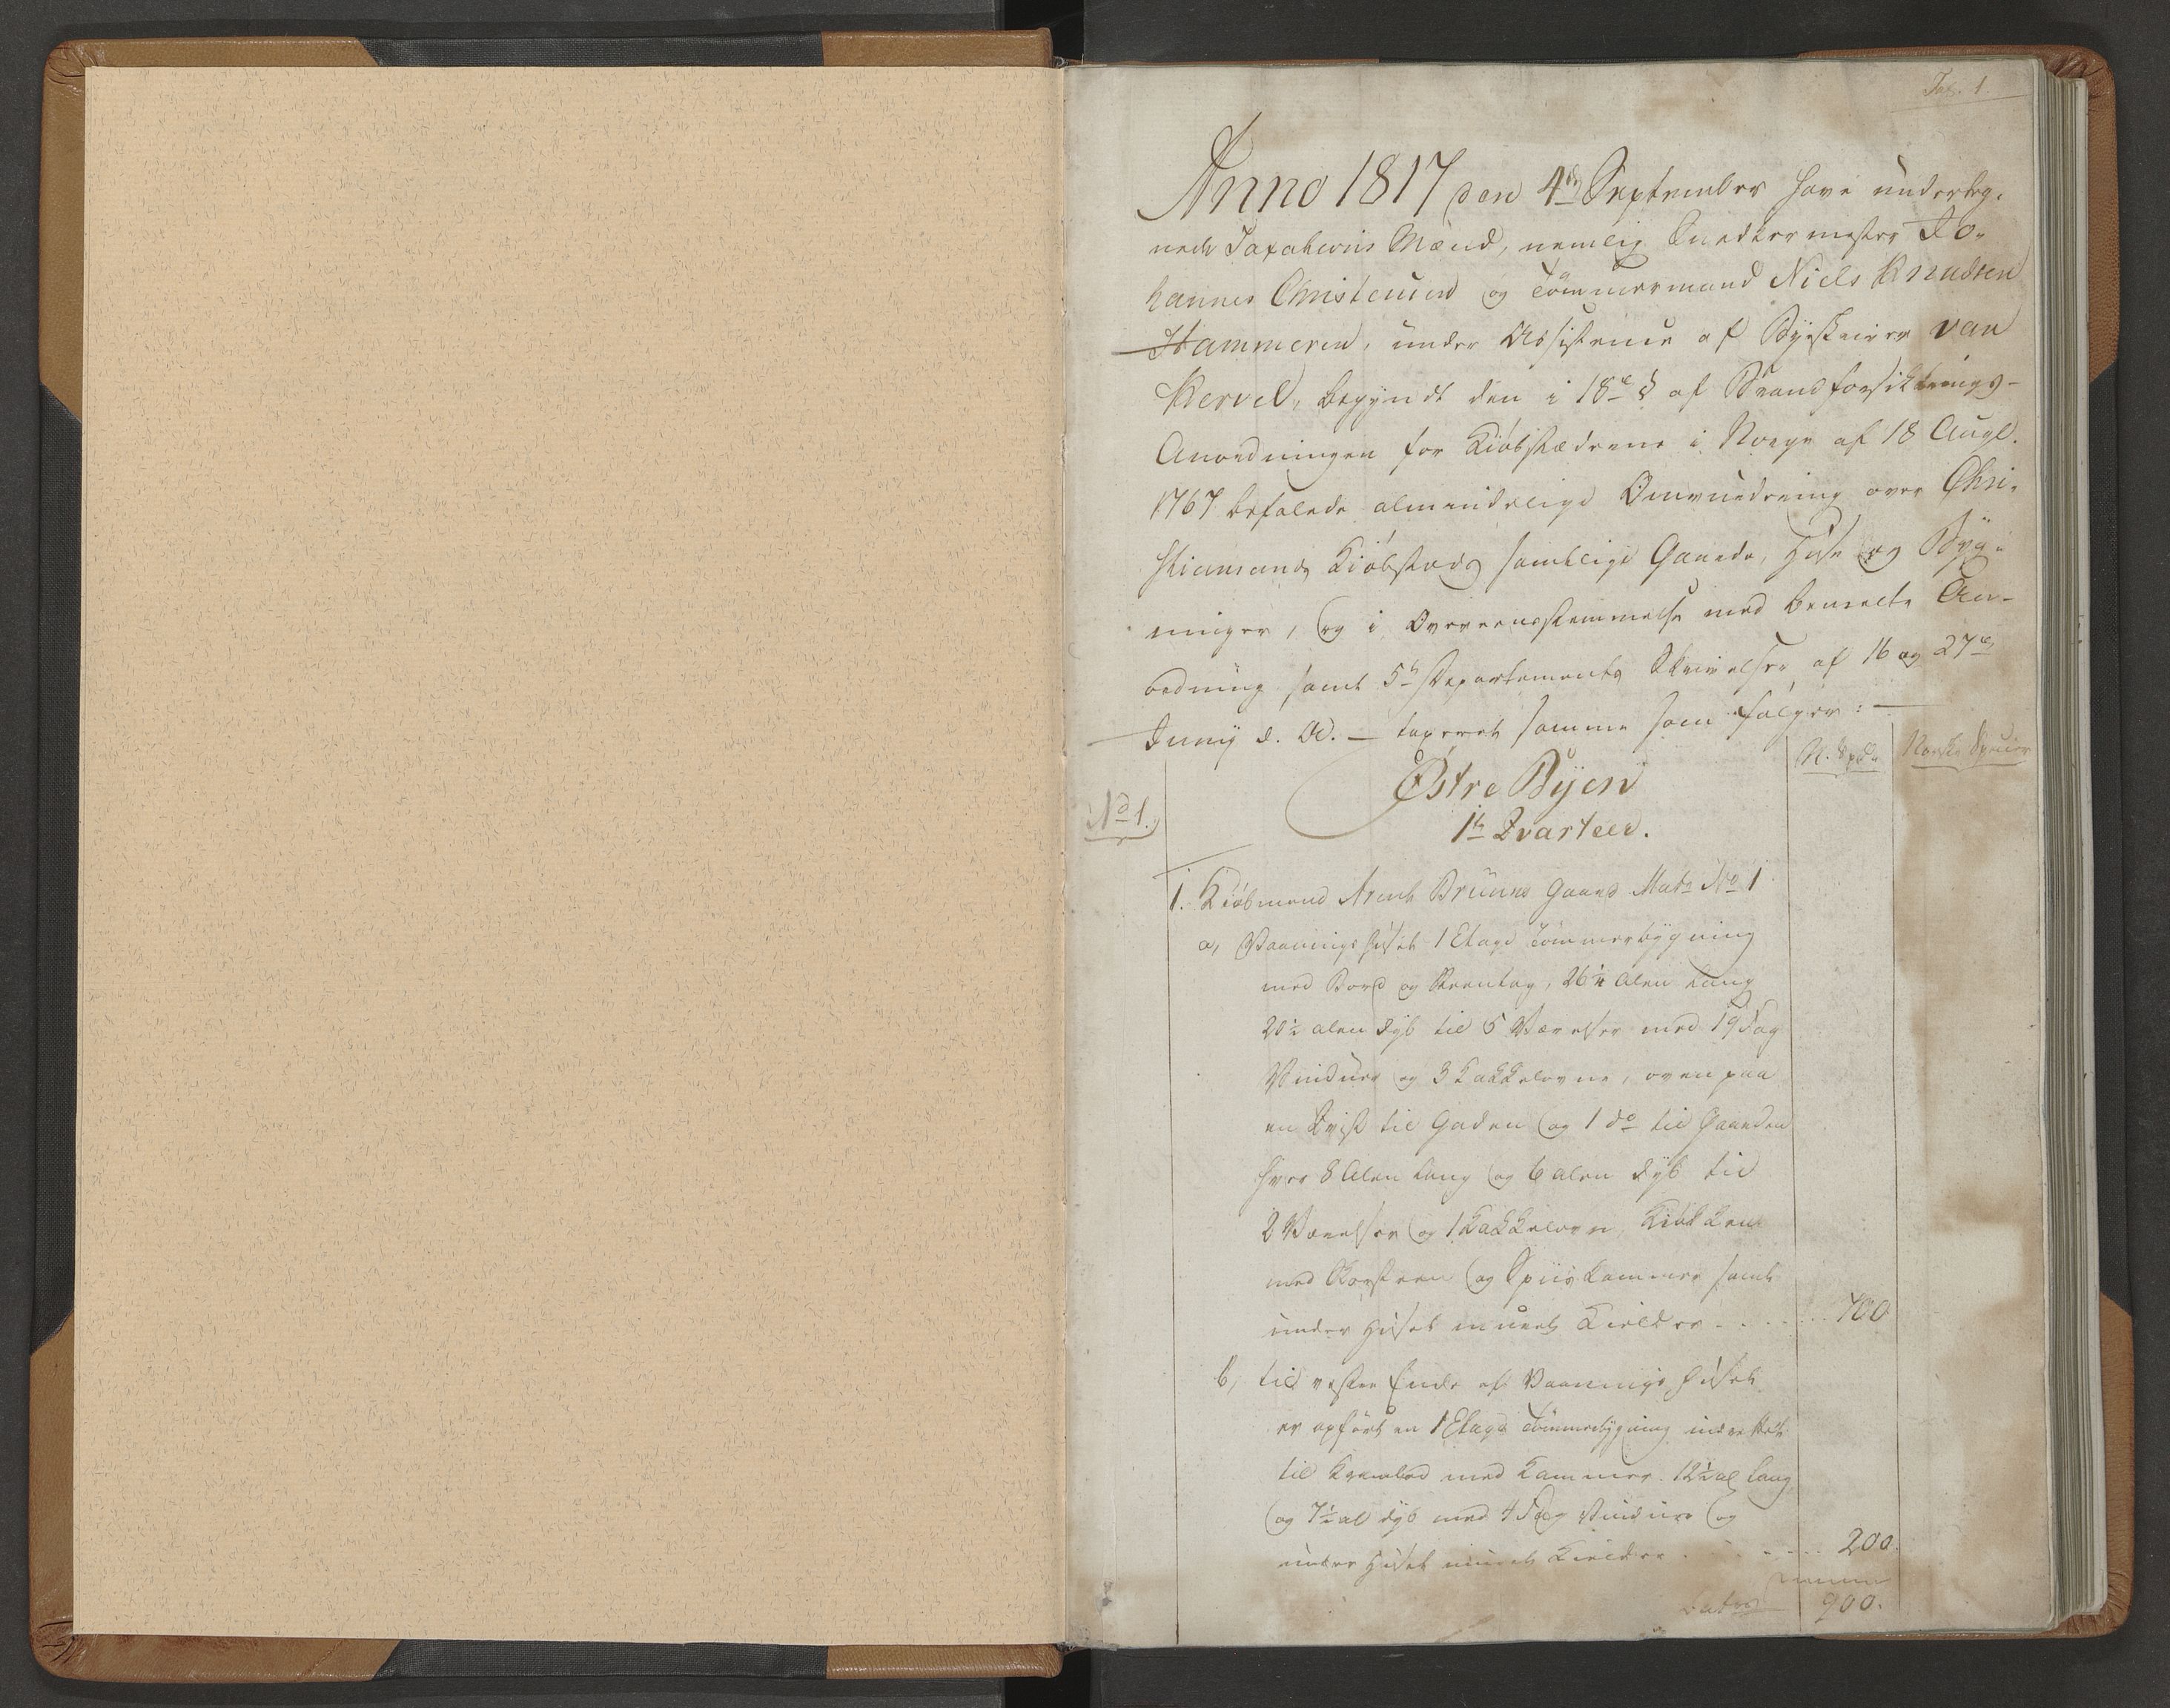 Anno 1817 den 4de September have underteg-
nede Taxations Mænd, nemlig Snedkermester Jo-
hannes Christensen og Tömmermand Niels Knudsen
Hammeren, under Assistence af Byeskriver van
Kervel, begyndt den i 18de § af Brandforsikkrings-
Anordningen for Kiöbstæderne i Norge af 18 Augt.
1767 befalede almindelige Omvurdering over Chri-
stiansands Kiöbstæds samtlige Gaarde, Huse og Byg-
ninger, og i Overeensstemmelse med bemelte An-
ordning samt 5te Departements Skrivelser af 16 og 27de
Junij d. A. — taxeret samme som fölger: —
N. Spd. Norske Specier
Østre Byen
No 1.
1te Qvarteer.
1. Kiöbmand Arent Bruuns Gaard Matr No 1
a, Vaaningshuset 1 Etage Tömmerbygning
med Bord og Steentag, 26½ Alen lang
20½ alen dyb til 5 Værelser med 19 Fag
Vinduer og 3 Kakkelovne, oven paa
en Qvist til Gaden og 1 do til Gaarden
hver 8 Alen lang og 6 alen dyb til
2 Værelser og 1 Kakkelovn, Kiökken
med Skorsteen og Spiiskammer samt
under Huset muret Kielder . . . . . . 700
b, til vestre Ende af Vaaningshuset
er opfört en 1 Etage Tömmerbygning indrettet
til Krambod med Kammer. 12½ al lang
og 7½ al dyb med 4 Fag Vinduer og
under Huset muret Kielder . . . . . . 200.
Latus 900.